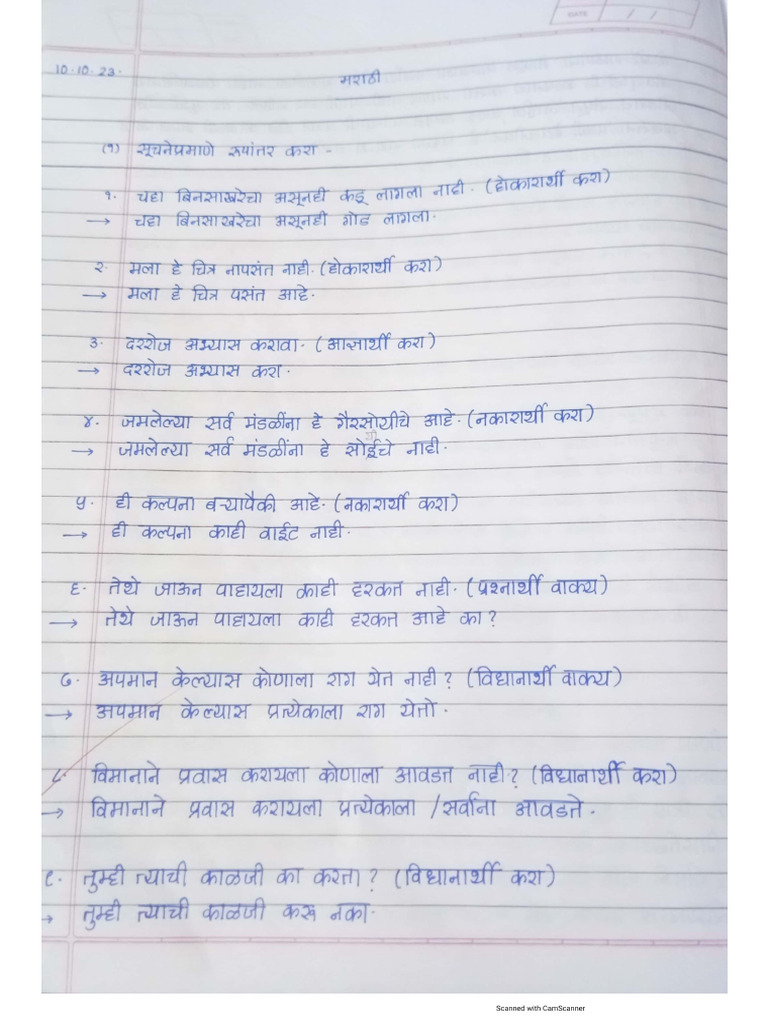 DATE / /
10.10.23.
मराठी
(१) सूचनेप्रमाणे रूपांतर करा -
१. चहा बिनसाखरेचा असूनही कडू लागला नाही. (होकारार्थी करा)
→ चहा बिनसाखरेचा असूनही गोड लागला.
२. मला हे चित्र नापसंत नाही. (होकारार्थी करा)
→ मला हे चित्र पसंत आहे.
३. दररोज अभ्यास करावा. (आज्ञार्थी करा)
→ दररोज अभ्यास करा.
४. जमलेल्या सर्व मंडळींना हे गैरसोयीचे आहे. (नकारार्थी करा)
→ जमलेल्या सर्व मंडळींना हे सोईचे नाही.
५. ही कल्पना बऱ्यापैकी आहे. (नकारार्थी करा)
→ ही कल्पना काही वाईट नाही.
६. तेथे जाऊन पाहायला काही हरकत नाही. (प्रश्नार्थी वाक्य)
→ तेथे जाऊन पाहायला काही हरकत आहे का?
७. अपमान केल्यास कोणाला राग येत नाही? (विधानार्थी वाक्य)
→ अपमान केल्यास प्रत्येकाला राग येतो.
८. विमानाने प्रवास करायला कोणाला आवडत नाही? (विधानार्थी करा)
→ विमानाने प्रवास करायला प्रत्येकाला / सर्वांना आवडते.
९. तुम्ही त्याची काळजी का करता? (विधानार्थी करा)
→ तुम्ही त्याची काळजी करू नका.
Scanned with CamScanner